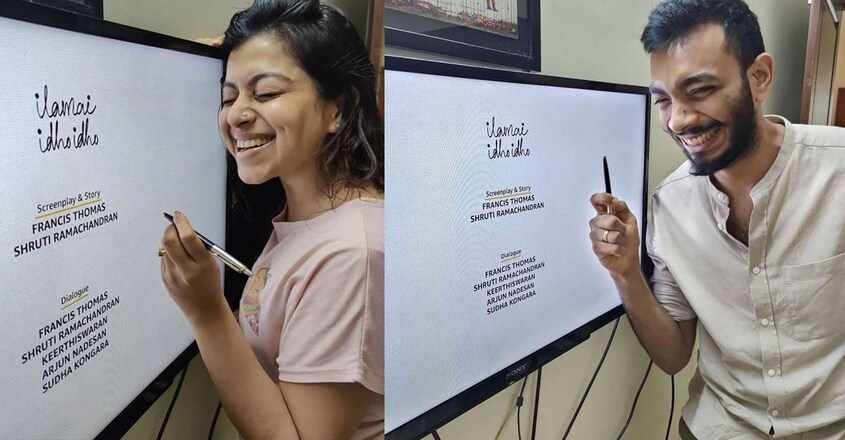 ilamai
idho idho
Screenplay & Story
FRANCIS THOMAS
SHRUTI RAMACHANDRAN
Dialogue
FRANCIS THOMAS
SHRUTI RAMACHANDRAN
KEERTHISWARAN
ARJUN NADESAN
SUDHA KONGARA
ilamai
idho idho
Screenplay & Story
FRANCIS THOMAS
SHRUTI RAMACHANDRAN
Dialogue
FRANCIS THOMAS
SHRUTI RAMACHANDRAN
KEERTHISWARAN
ARJUN NADESAN
SUDHA KONGARA
SONY